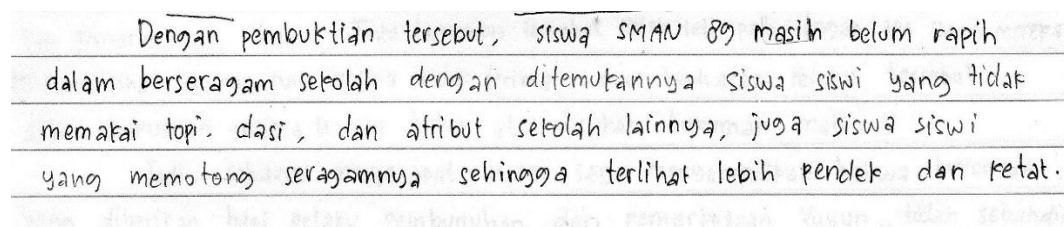 Dengan pembuktian tersebut, siswa SMAN 89 masih belum rapih
dalam berseragam sekolah dengan ditemukannya siswa siswi yang tidak
memakai topi, dasi, dan atribut sekolah lainnya, juga siswa siswi
yang memotong seragamnya sehingga terlihat lebih pendek dan ketat.